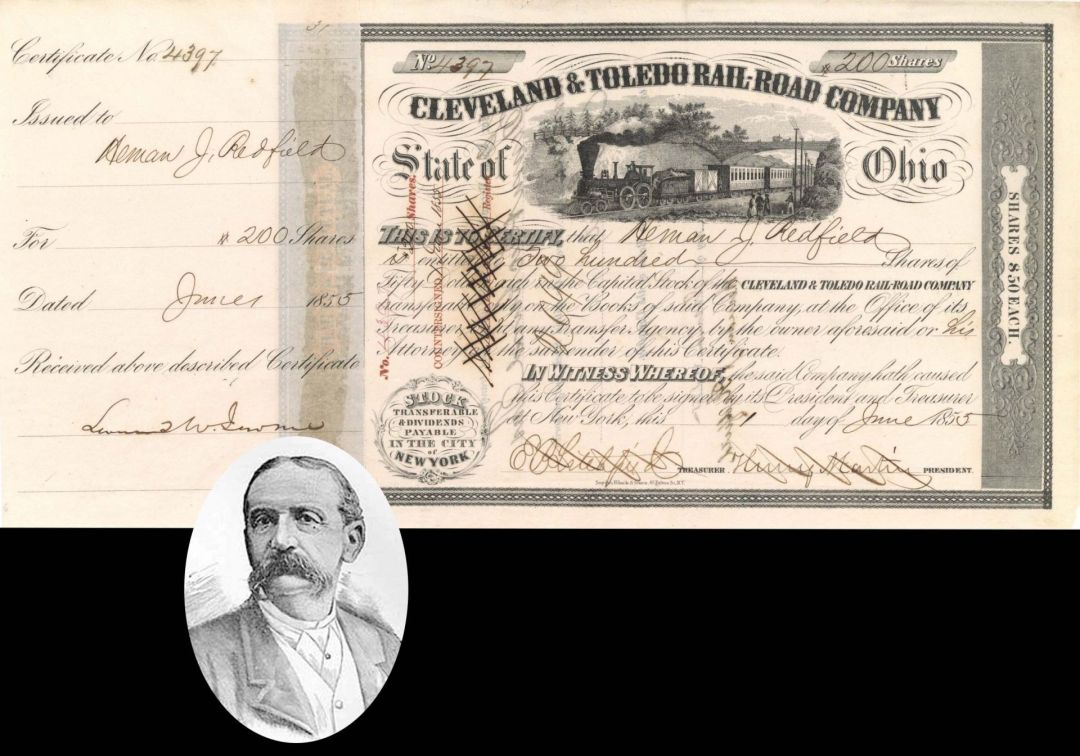 31
Certificate No. 4397
Issued to
Heman J. Redfield
For $200 Shares
Dated June 1 1855
Received above described Certificate
No. 4397
$200 Shares
CLEVELAND & TOLEDO RAIL-ROAD COMPANY
State of Ohio
THIS IS TO CERTIFY, that Heman J. Redfield
is entitled to Two hundred Shares of
Fifty Dollars each in the Capital Stock of the CLEVELAND & TOLEDO RAIL-ROAD COMPANY
transferable only on the Books of said Company, at the Office of its
Treasurer or any Transfer Agency, by the owner aforesaid or his
Attorney on the surrender of this Certificate.
IN WITNESS WHEREOF, the said Company hath caused
this Certificate to be signed by its President and Treasurer
at New York, this 1 day of June 1855
TREASURER Henry Martin PRESIDENT.
STOCK
TRANSFERABLE
& DIVIDENDS
PAYABLE
IN THE CITY
of
NEW YORK
SHARES $50 EACH
No.
Shares.
COUNTERSIGNED